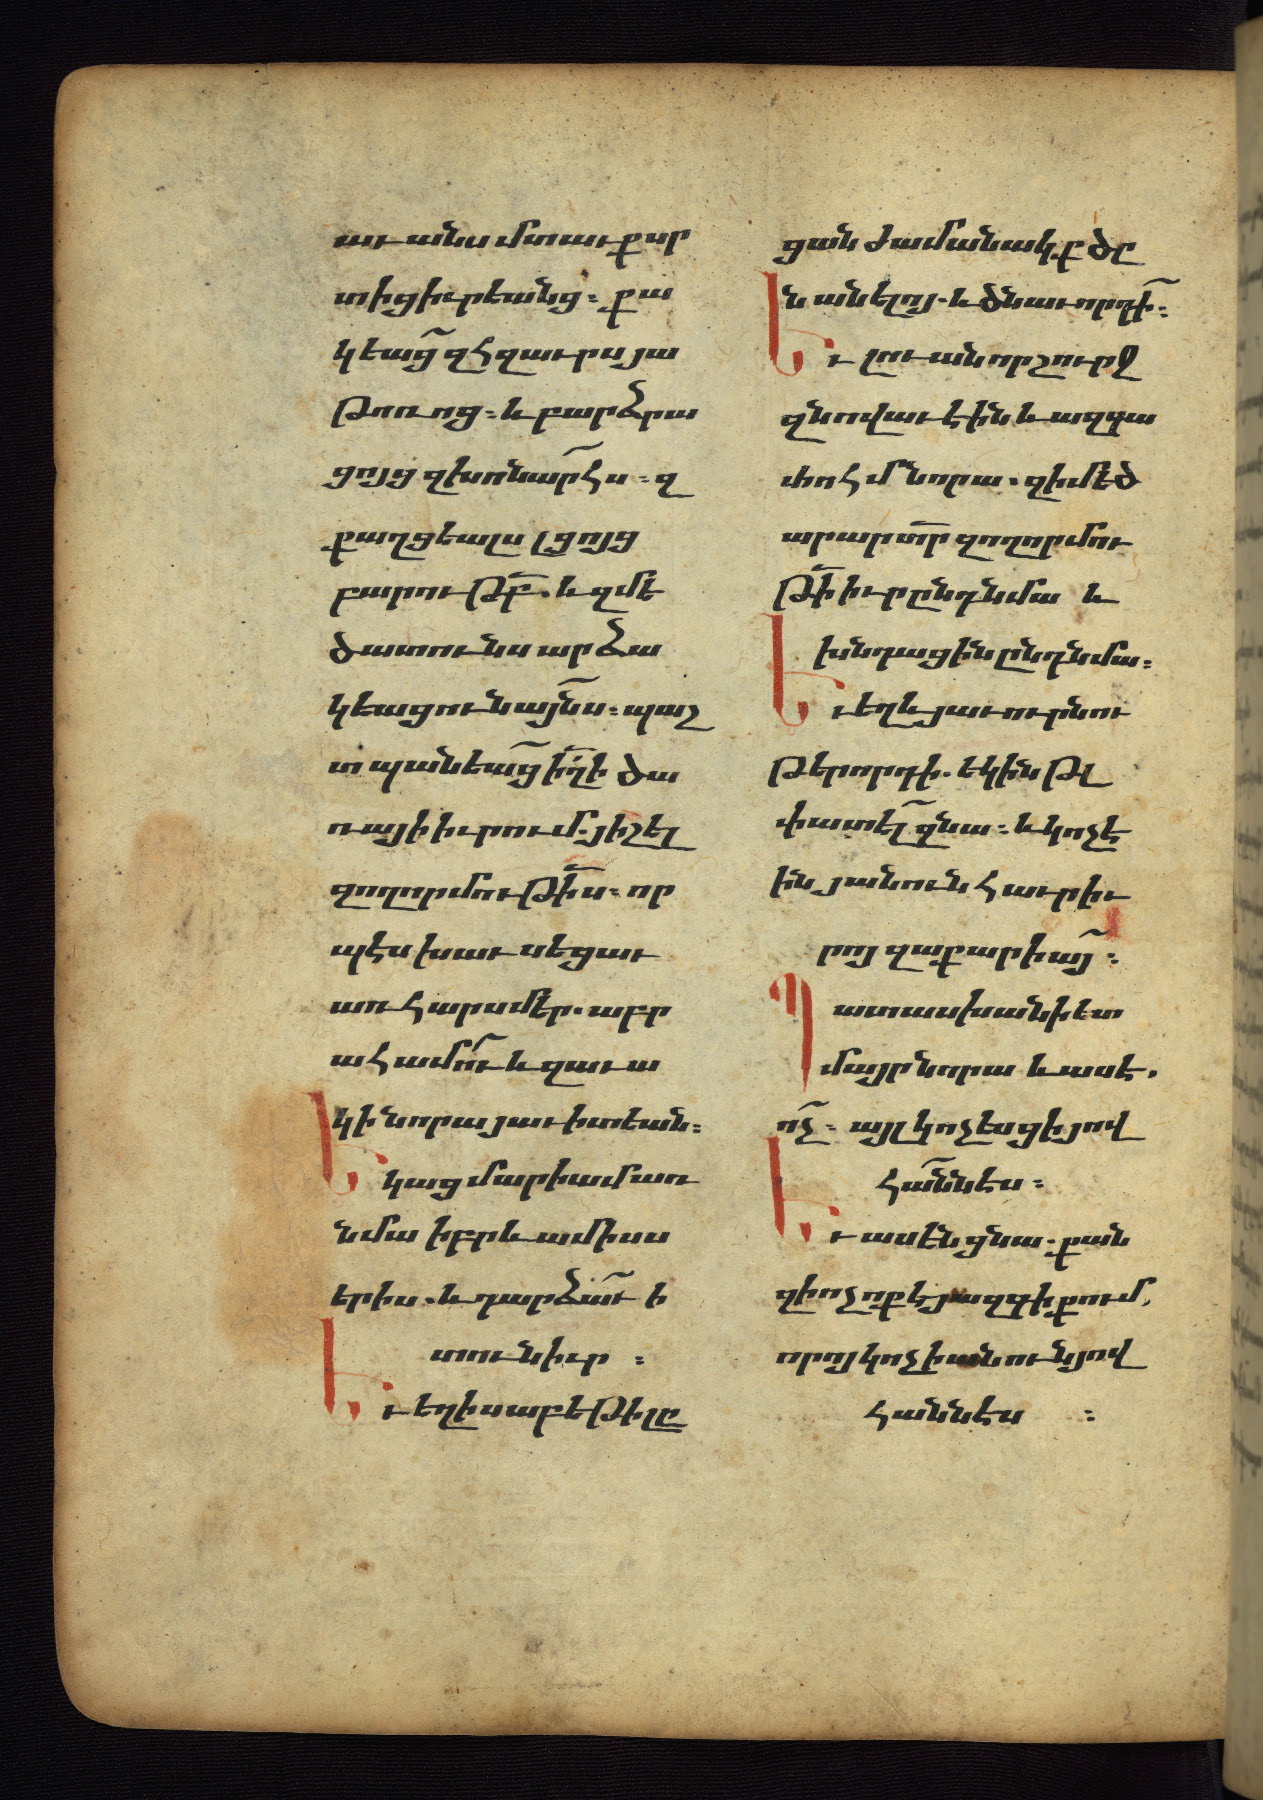 աւ անս մտաւք սր
տից իւրեանց։ քա
կեաց̃ զհզաւրս յա
թոռոց։ և բարձրա
ցոյց զխոնար̃հս։ զ
քաղցեալս լցոյց
բարութբ̃. և զմե
ծատունս արձա
կեաց ունայն̃ս։ պաշ
տպանեաց̃ ի̃ղի ծա
ռայի իւրում. յիշել
զողորմութի̃ս։ որ
պէս խաւսեցաւ
առ հարս մեր. աբր
ահամու̃ և զաւա
կի նորա յաւիտեան։
Եկաց մարիամ առ
նմա իբրև ամիսս
երիս. և դարձաւ̃ ի
տուն իւր ։
Եւ եղիսաբեթի լը
ցան ժամանակք ծը
նանելոյ. և ծնաւ որդի̃։
Եւ լուան որ շուրջ
զնովաւ էին և ազգա
տոհմ նորա. զի մեծ
արար տր̃ զողորմու
թի̃ իւր ընդ նմա և
խնդացին ընդ նմա։
Եւ եղև յաւուրն ու
թերորդի. եկին թլ
փատել̃ զնա։ և կոչէ
ին յանուն հաւր իւ
րոյ զաքարիայ̃ ։
Պատասխանի ետ
մայր նորա և ասէ.
ոչ̃ ։ այլ կոչեսցի յով
հան̃նէս ։
Եւ ասեն ցնա. քան
զի ոչ ոք է յազգի քում,
որոյ կոչի անուն յով
հաննէս ։